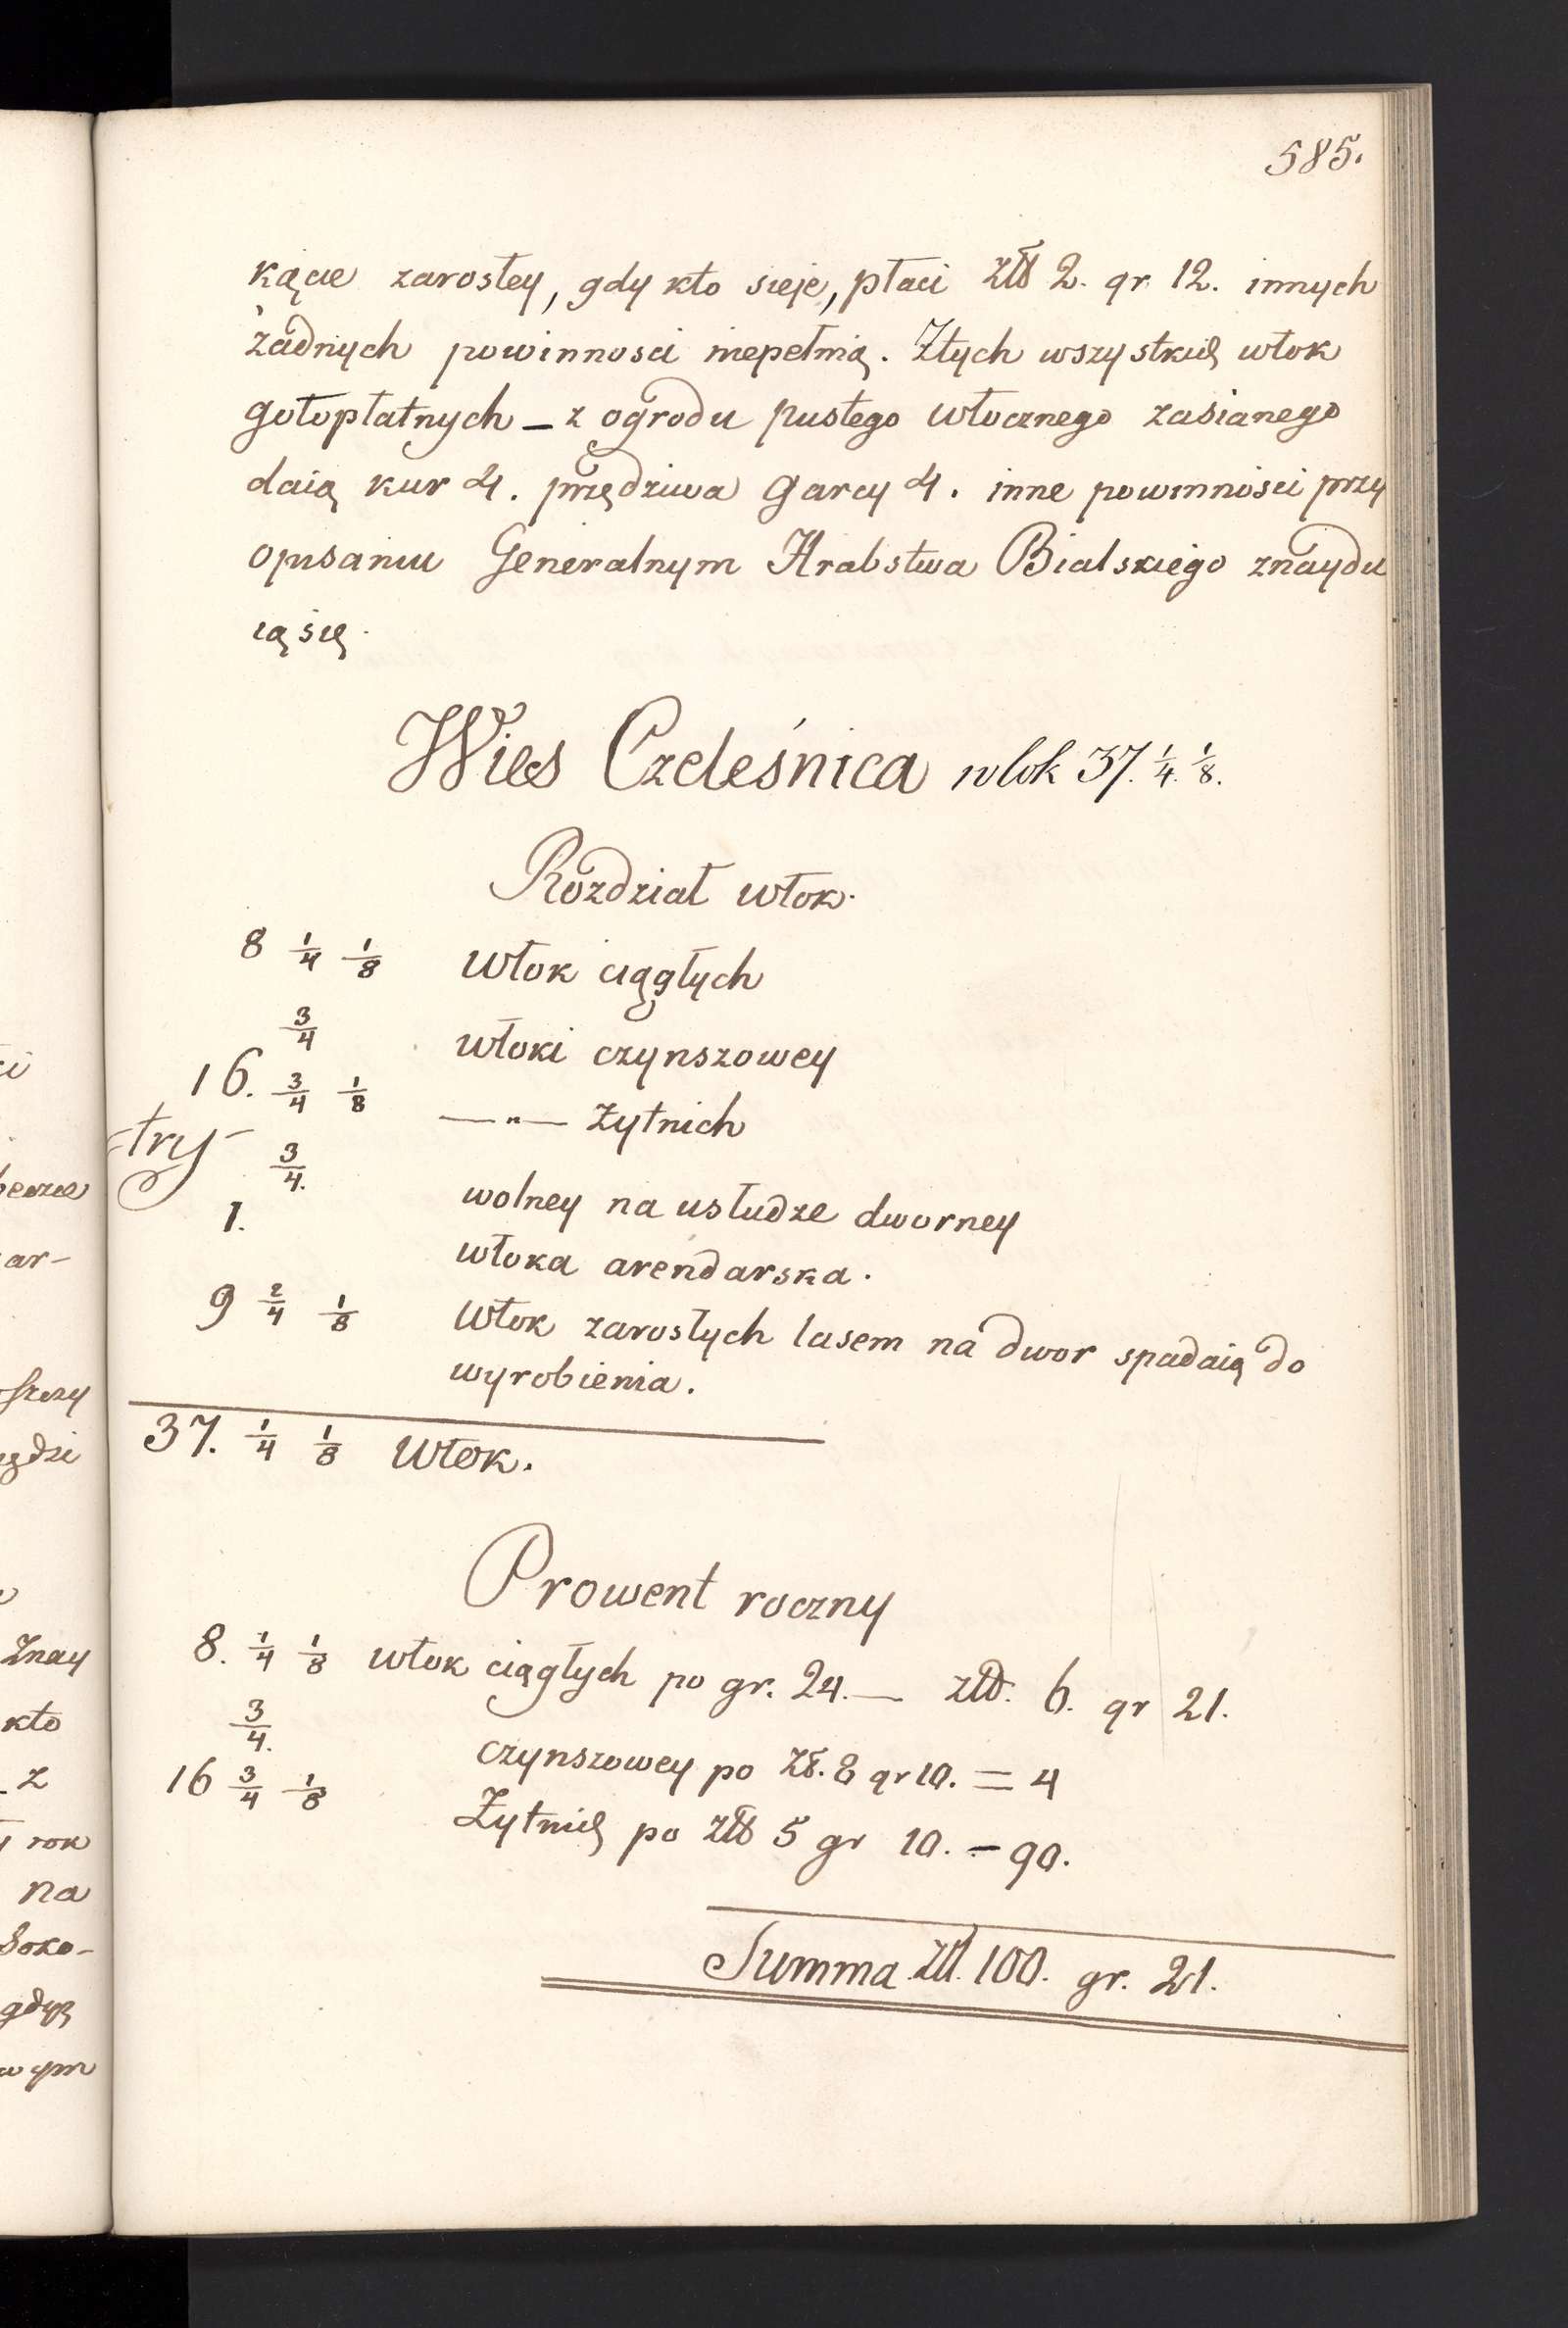 585.
kącie zarosłey, gdy kto sieje, płaci złł 2. gr 12. innych
żadnych powinnosci niepełnią. Ztych wszystkich włok
gołopłatnych – z ogrodu pustego włocznego zasianego
daią kur 4. przędziwa Garcy 4. inne powinnosci przy
opisaniu Generalnym Hrabstwa Bialskiego znaydu
ią się.
Wies Czeleśnica włok 37. 1/4. 1/8.
Rozdział włok.
8 1/4 1/8 włok ciągłych
3/4 włoki czynszowey
16. 3/4 1/8 —"— żytnich
try 3/4. wolney na usłudze dworney
1. włoka arendarska.
9 2/4 1/8 włok zarosłych lasem na dwor spadaią do
wyrobienia.
37. 1/4 1/8 włok.
Prowent roczny
8. 1/4 1/8 włok ciągłych po gr. 24. — złł. 6. gr 21.
3/4. czynszowey po zł. 8 gr 10. = 4
16 3/4 1/8 Żytnich po złł 5 gr 10. – 90.
Summa złł. 100. gr. 21.